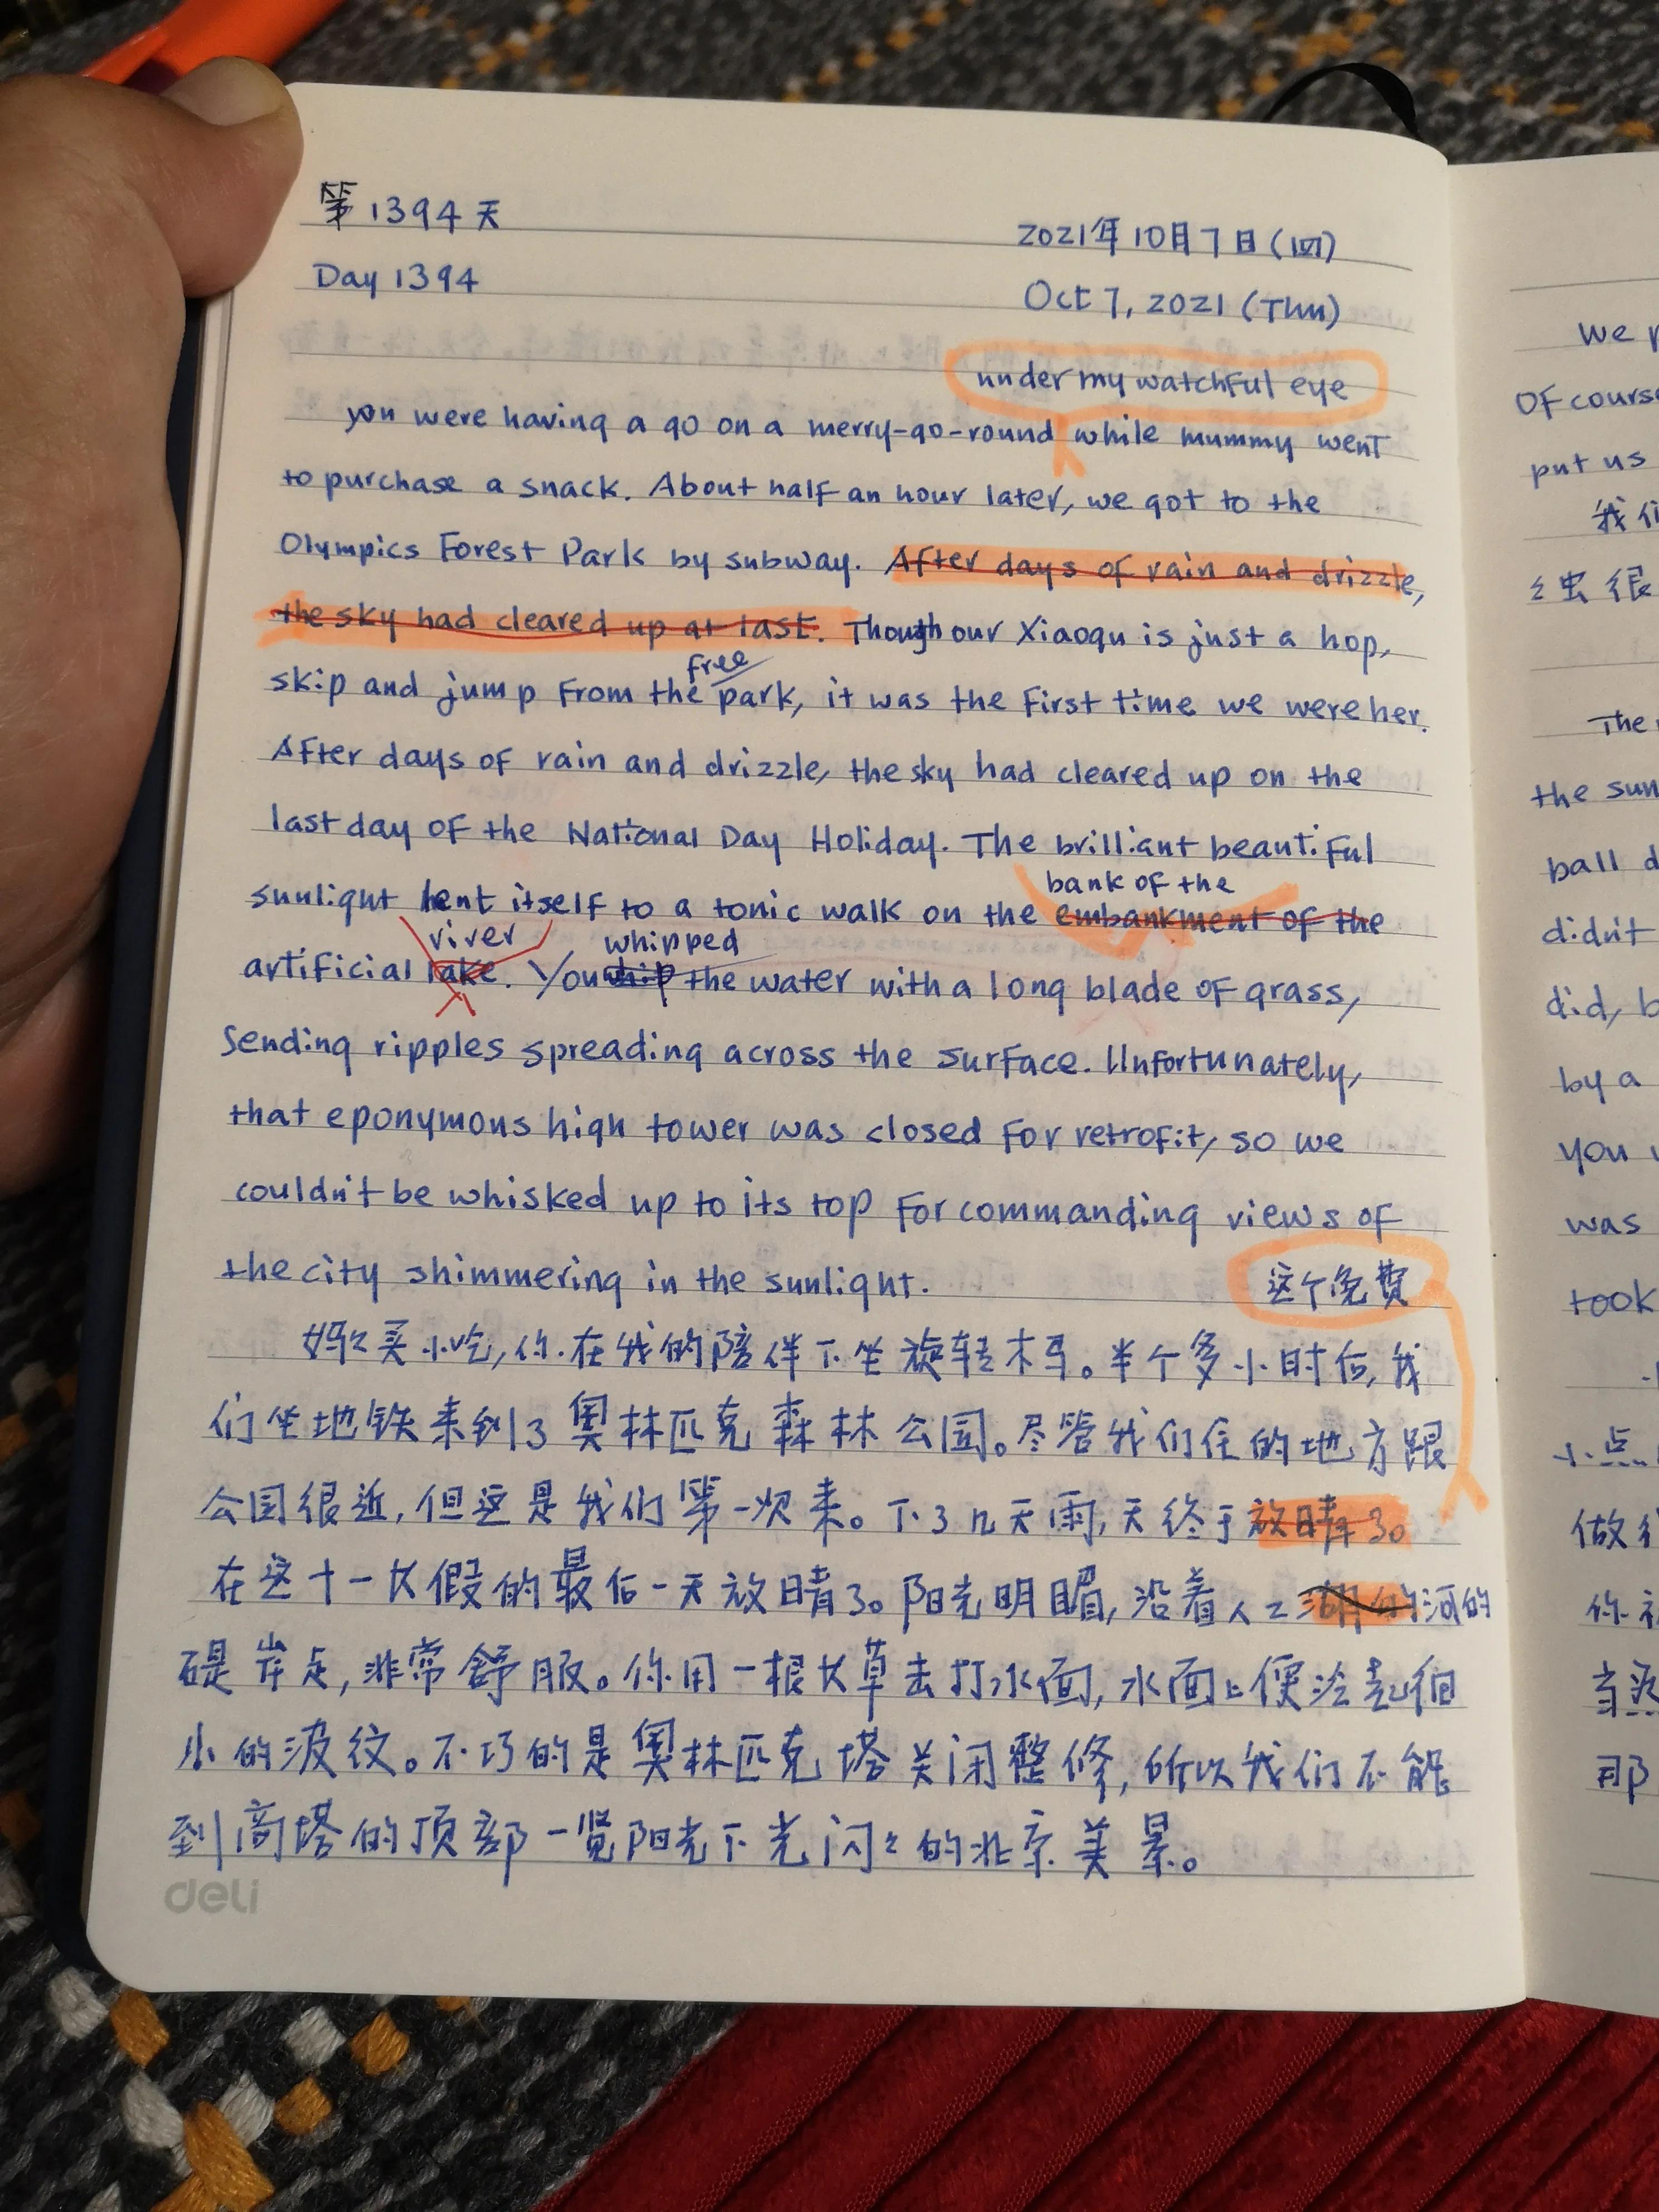 第1394天
2021年10月7日(四)
Day 1394
Oct 7, 2021 (Thu)
under my watchful eye
you were having a go on a merry-go-round while mummy went
to purchase a snack. About half an hour later, we got to the
Olympics Forest Park by subway. After days of rain and drizzle,
the sky had cleared up at last. Though our Xiaoqu is just a hop,
free
skip and jump from the park, it was the first time we were her.
After days of rain and drizzle, the sky had cleared up on the
last day of the National Day Holiday. The brilliant beautiful
bank of the
sunlight lent itself to a tonic walk on the embankment of the
river whipped
artificial lake. You whip the water with a long blade of grass,
sending ripples spreading across the surface. Unfortunately,
that eponymous high tower was closed for retrofit, so we
couldn't be whisked up to its top for commanding views of
the city shimmering in the sunlight.
这个免费
妈妈买小吃,你在我的陪伴下坐旋转木马。半个多小时后,我
们坐地铁来到了奥林匹克森林公园。尽管我们住的地方跟
公园很近,但这是我们第一次来。下了几天雨,天终于放晴了。
在这十一长假的最后一天放晴了。阳光明媚,沿着人工湖的河的
碮岸走,非常舒服。你用一根长草去打水面,水面上便泛起细
小的波纹。不巧的是奥林匹克塔关闭整修,所以我们不能
到高塔的顶部一览阳光下光闪闪的北京美景。
deli
We
Of course
put us
我们
虫很
The
the sun
ball d
didn't
did, b
by a
you
was
took
小点
做
你
当
那